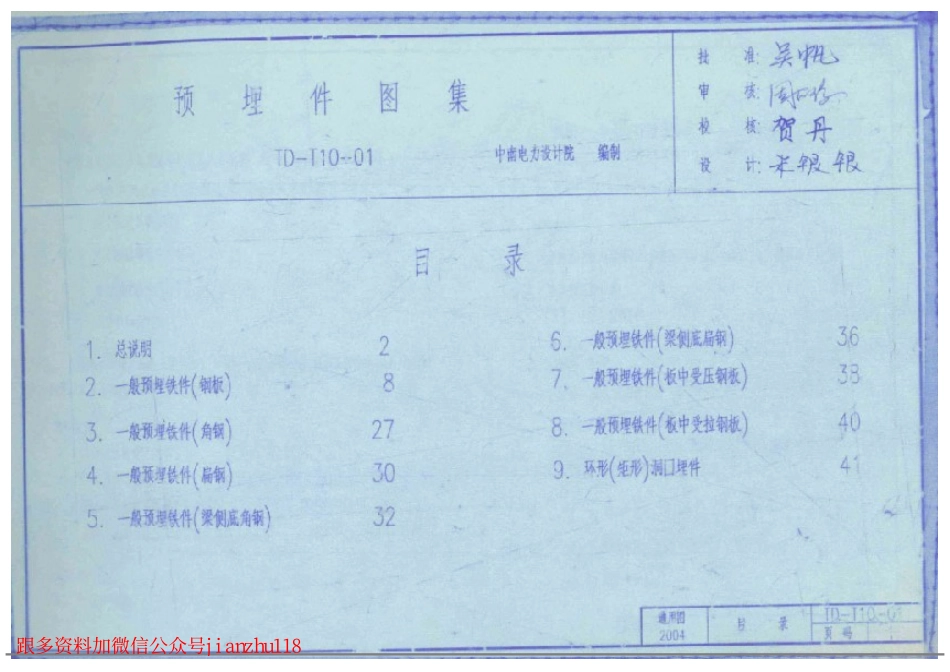 预埋件图集
TD-T10-01 中南电力设计院 编制
批准: 吴帆
审核:
校核: 贺丹
设计: 米银银
目录
1. 总说明 2
2. 一般预埋铁件(钢板) 8
3. 一般预埋铁件(角钢) 27
4. 一般预埋铁件(扁钢) 30
5. 一般预埋铁件(梁侧底角钢) 32
6. 一般预埋铁件(梁侧底扁钢) 36
7. 一般预埋铁件(板中受压钢板) 38
8. 一般预埋铁件(板中受拉钢板) 40
9. 环形(矩形)洞口埋件 41
通用图 2004
目录
TD-T10-01
页号
跟多资料加微信公众号jianzhu118